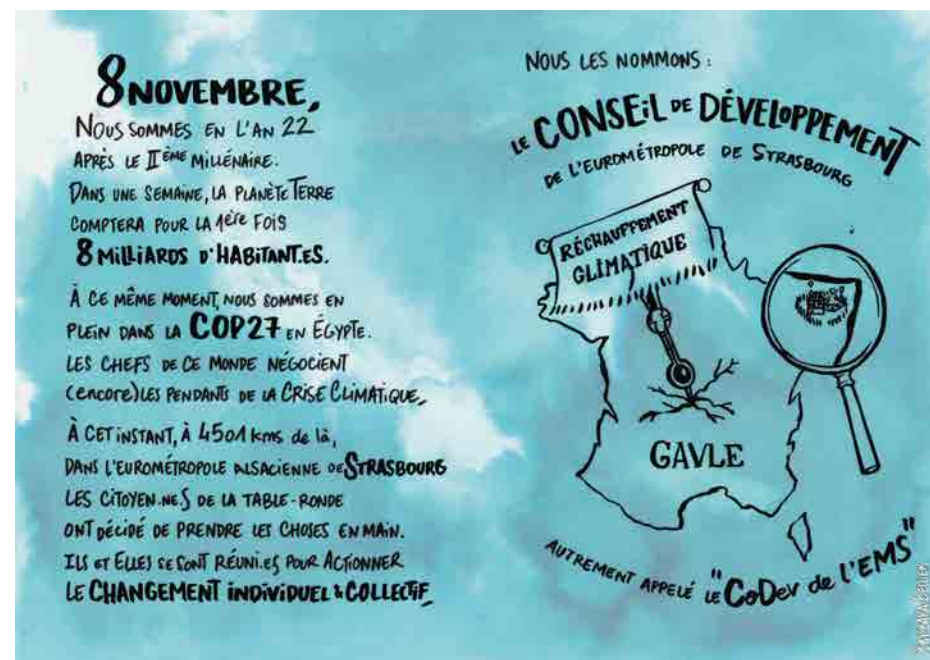 8 NOVEMBRE,
NOUS SOMMES EN L'AN 22
APRÈS LE IIÈME MILLÉNAIRE.
DANS UNE SEMAINE, LA PLANÈTE TERRE
COMPTERA POUR LA 1ère FOIS
8 MILLIARDS D'HABITANT.ES.
À CE MÊME MOMENT, NOUS SOMMES EN
PLEIN DANS LA COP27 EN ÉGYPTE.
LES CHEFS DE CE MONDE NÉGOCIENT
(encore) LES PENDANTS DE LA CRISE CLIMATIQUE,
À CET INSTANT, À 4501 kms de là,
DANS L'EUROMÉTROPOLE ALSACIENNE DE STRASBOURG
LES CITOYEN.NE.S DE LA TABLE-RONDE
ONT DÉCIDÉ DE PRENDRE LES CHOSES EN MAIN.
ILS ET ELLES SE SONT RÉUNI.ES POUR ACTIONNER
LE CHANGEMENT INDIVIDUEL & COLLECTIF,
NOUS LES NOMMONS :
LE CONSEIL DE DÉVELOPPEMENT
DE L'EUROMÉTROPOLE DE STRASBOURG
RÉCHAUFFEMENT
GLIMATIQUE
GAVLE
AUTREMENT APPELÉ LE "CoDev de L'EMS"